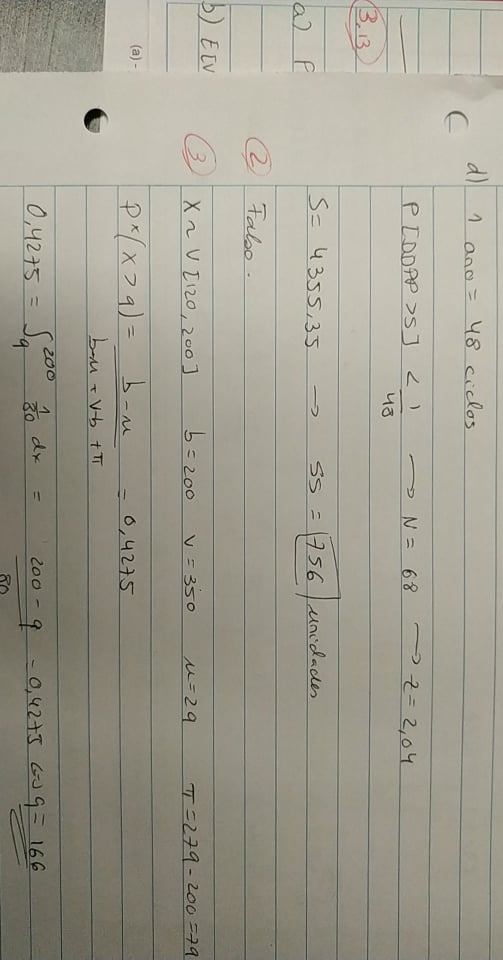 d) 1 ano = 48 ciclos
P[DDPP > S] < 1/48 → N = 68 → z = 2,04
3.13
S = 4355,35 → SS = 756 unidades
a) P
2 Falso.
b) E[V
3 X ~ U[120, 200] b = 200 v = 350 u = 29 π = 279 - 200 = 79
(a) -
P*(X > q) = b - u / b - u + v - b + π = 0,4275
0,4275 = ∫q^200 1/80 dx = 200 - q / 80 = 0,4275 (=) q = 166